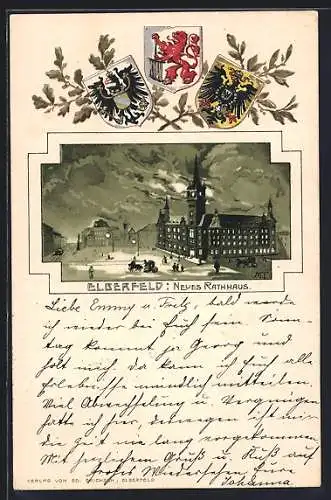 ELBERFELD: NEUES RATHHAUS.
Liebe Emmy u. Fritz, bald werde
ich wieder bei Euch sein. Sonn-
tag kommt ja Georg und
holt mich. Da kann ich Euch alle
Erlebnisse mündlich mitteilen.
Viel Abwechslung u. Vergnügen
hatte ich hier, deswegen ist mir
die Zeit nie lang vorgekommen.
Mit herzlichem Gruß u. Kuß auf
frohes Wiedersehen Eure
Johanna
VERLAG VON ED. ELBERFELD